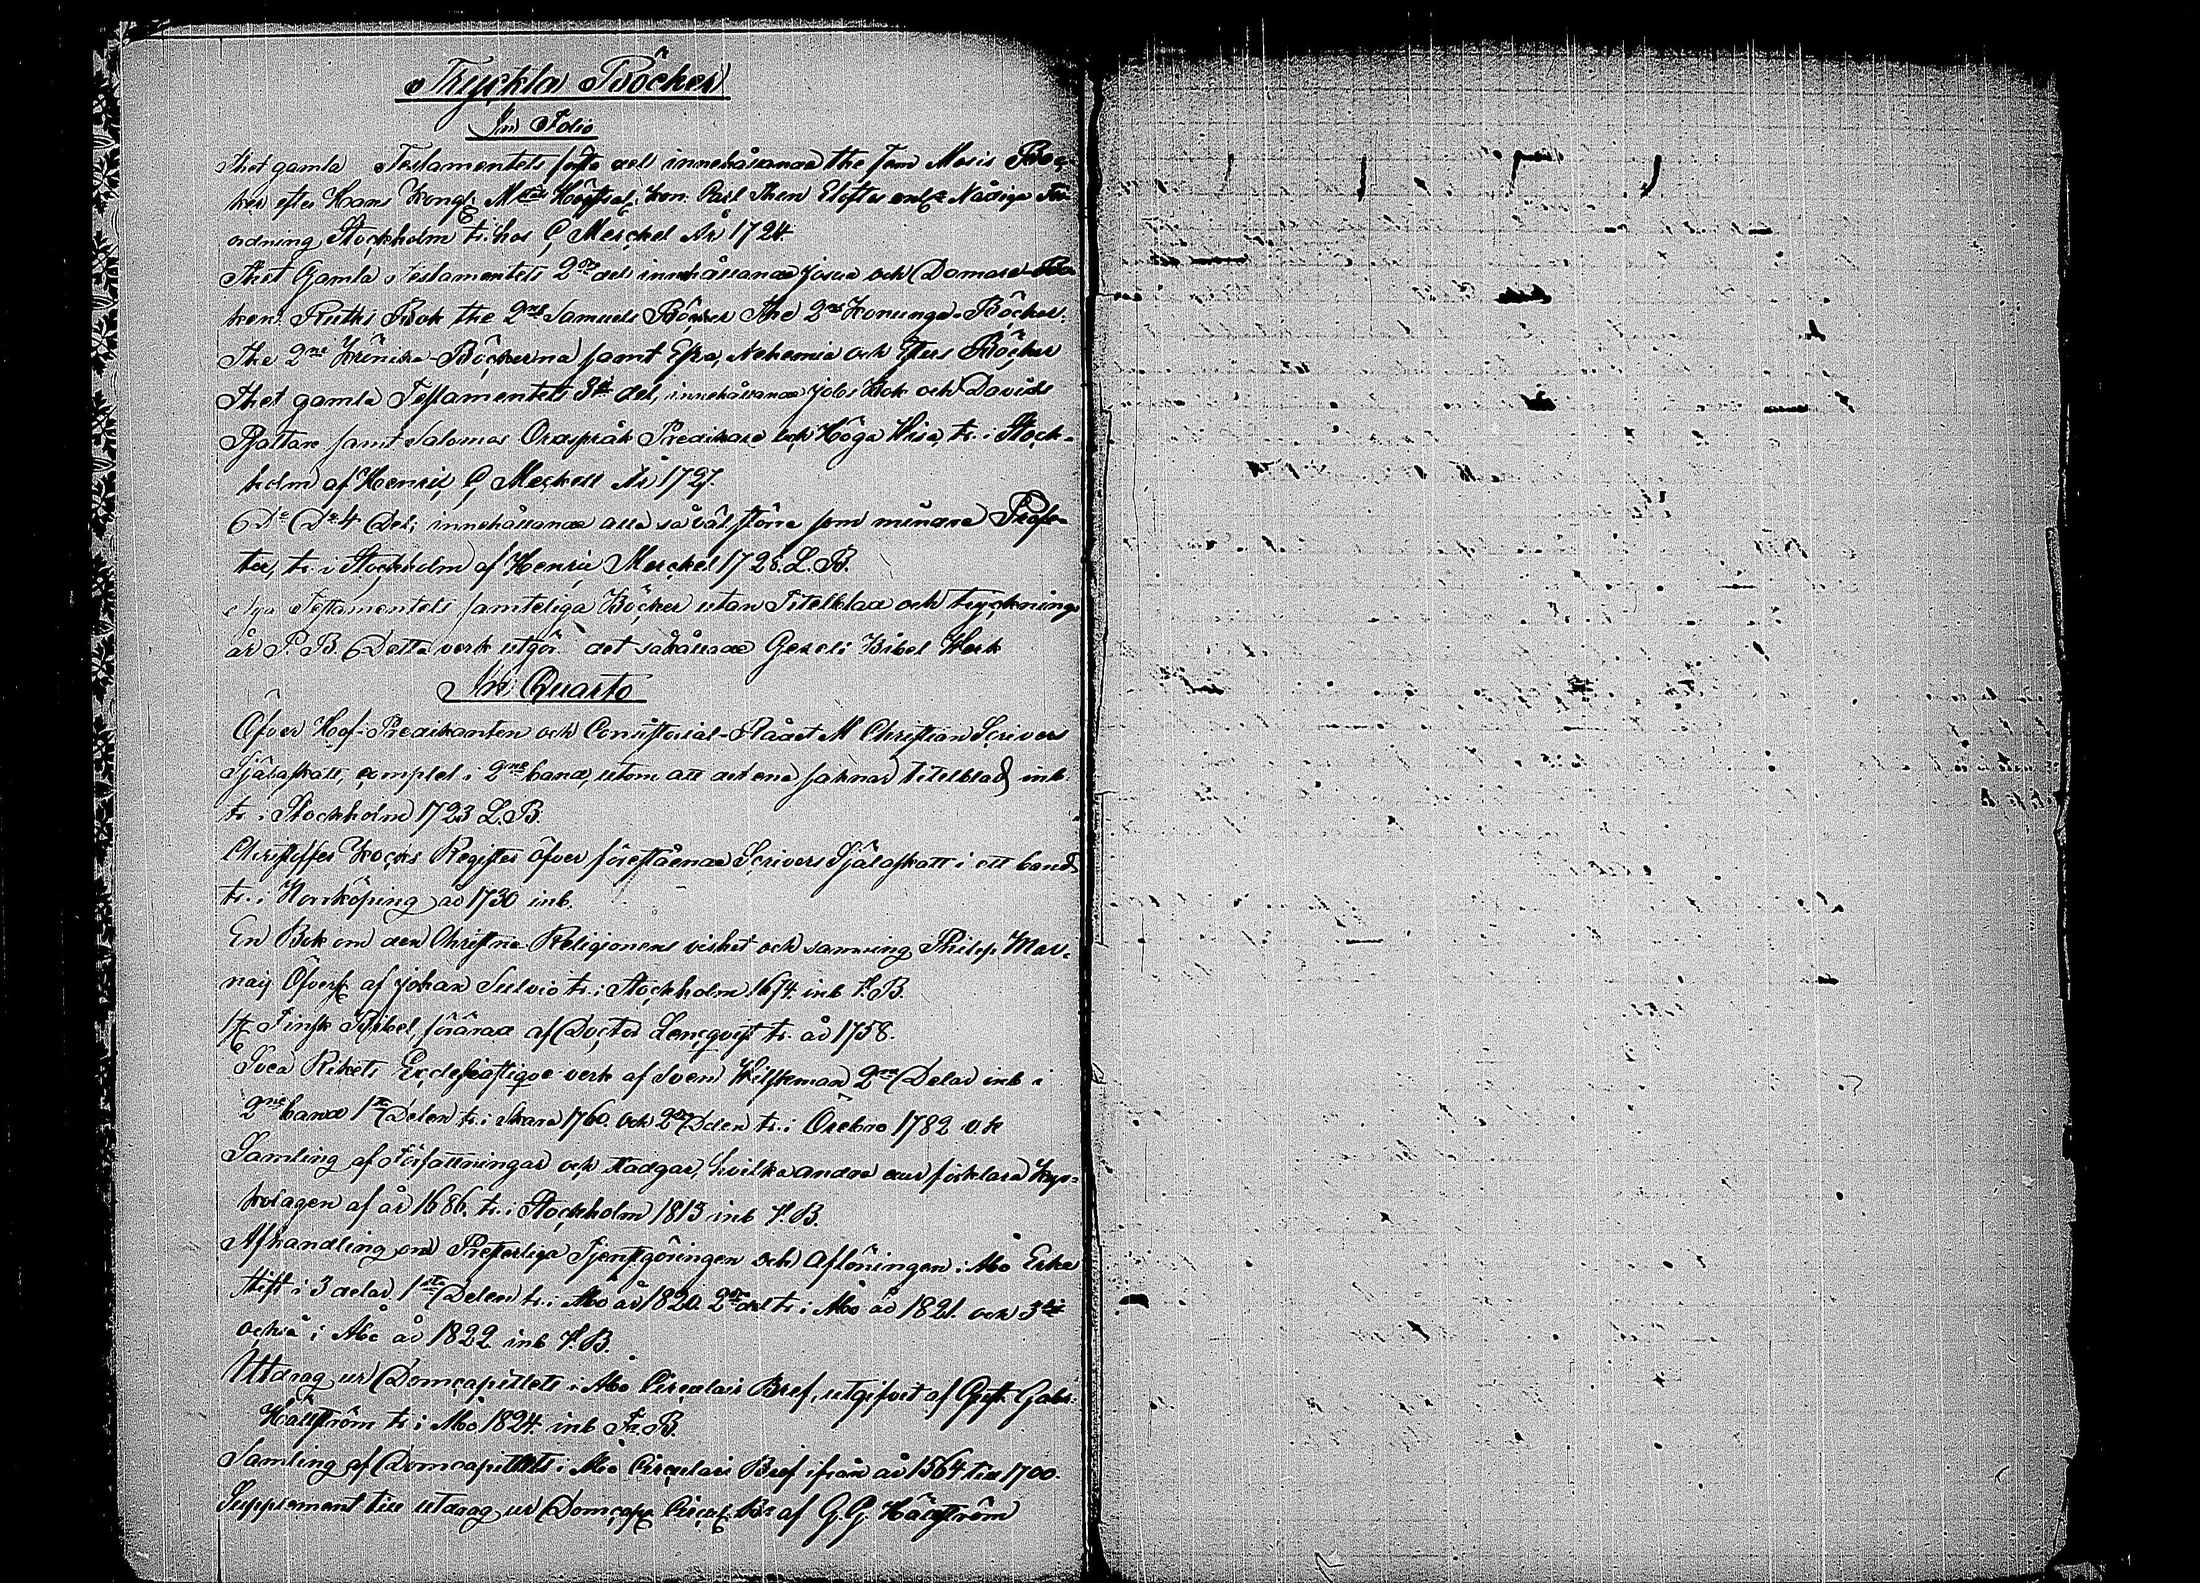 Tryckta Böcker
In Folio
Thet gamla Testamentets första del innehållande the fem Mosis Böc-
ker efter Hans Kongl. Höghtsal. Kon. Carl then Eloftes Nådiga För
ordning Stockholm tr. hos C, Merckel År 1724.
Thet Gamla Testamentets 2dra del innehållande Josua och Domare-Bö
ken. Ruths Bok the 2ne Samuels Böcker The 2ne Konunga-Böcker.
The 2ne Krönika-Böckerna samt Esra, Nehemia och Esters Böcker
Thet gamla Testamentets 3die del, innehållande Jobs Bok och Davids
Psaltare samt Salomos Ordspråk Predikare och Höga Wisa tr. i Stock-
holm af Henric C, Merkell År 1727.
Do Do 4 Del; innehållande alla såväl större som mindre Profe-
ter, tr. i Stockholm af Henric Merckel 1728. L. B.
Nya Testamentets samteliga Böcker utan Titelblad och trycknings
år P. B. Detta verk utgör det såkallade Gezeli Bibel Werk
In Quarto
Öfver Hof-Predikanten och Consistorial-Rådet M Christian Scrivers
Själaskatt, complet i 2ne band, utom att det ena saknar titelblad inb.
tr. i Stockholm 1723 L. B.
Christoffer Kocks Register öfver föreståcnde Scrivers Själaskatt i ett band
tr. i Norrköping år 1730 inb.
En Bok om den Christna Religionens vishet och sanning Philip Mor-
naij Öfvers. af Johan Sylvio tr. i Stockholm 1674. inb P. B.
1st. Finsk Bibel, förärad af Doctor Lencqvist tr. år 1758.
Svea Rikets Ecclesiastique verk af Sven Wilskman 2ne Delar inb i
2ne band 1sta Delen tr. i Skara 1760. och 2dra Delen tr. i Örebro 1782 o.k
Samling af Författningar och stadgar, hvilka ändra eller förklara Kyr-
kolagen af år 1686. tr. i Stockholm 1813 inb P. B.
Afhandling om Presterliga Tjenstgöringen och Aflöningen i Åbo Erke
stift i 3 delar 1sta Delen tr. i Åbo år 1820. 2dra del tr. i Åbo år 1821. och 3die
också i Åbo år 1822 inb P. B.
Utdrag ur Domcapitlets i Åbo Circulair Bref, utgifvit af Gust. Gabr.
Hällström tr. i Åbo 1824. inb Fr. B.
Samling af Domcapitlets i Åbo Circulair Bref ifrån år 1564 till 1700.
Supplement till utdrag ur Domcap. Circul. Br af G. G. Hällström